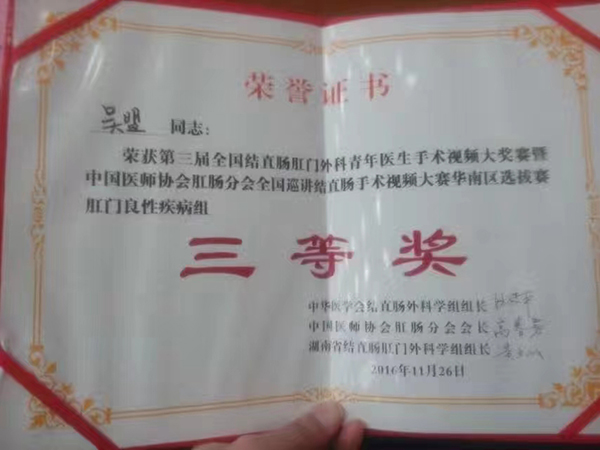 荣誉证书
吴盟 同志：
荣获第三届全国结直肠肛门外科青年医生手术视频大奖赛暨
中国医师协会肛肠分会全国巡讲结直肠手术视频大赛华南区选拔赛
肛门良性疾病组
三等奖
中华医学会结直肠外科学组组长
中国医师协会肛肠分会会长
湖南省结直肠肛门外科学组组长
2016年11月26日